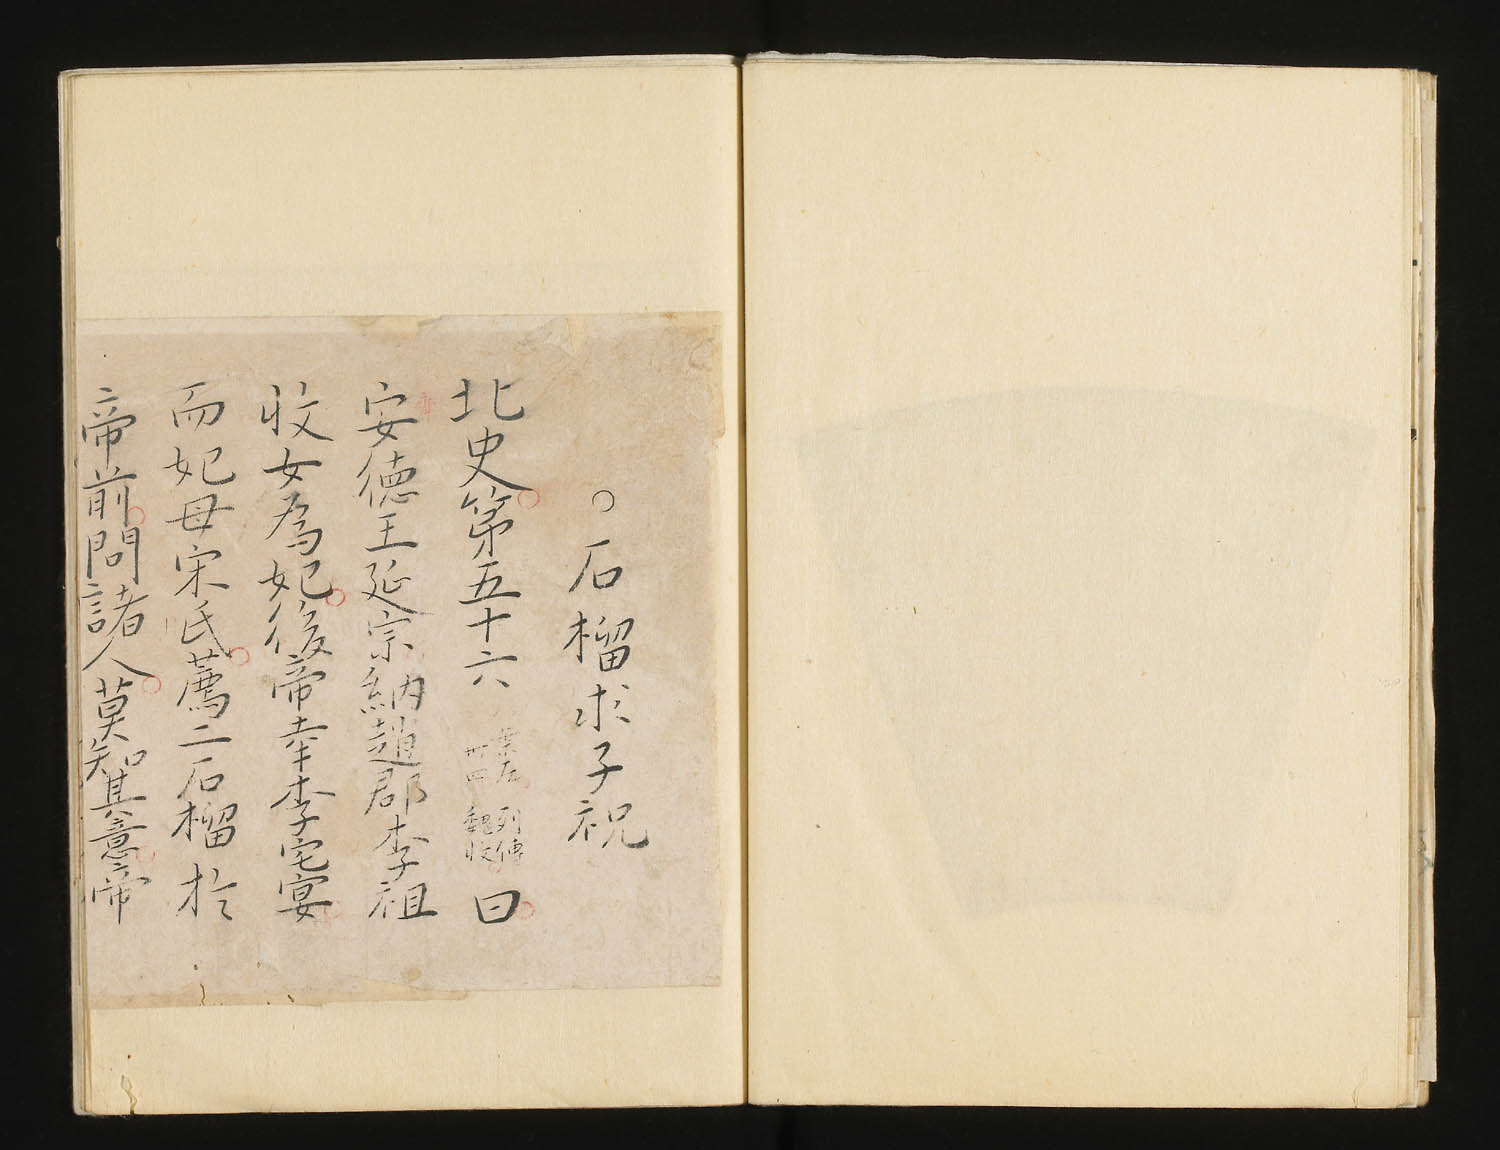 ○石榴求子祝
北史第五十六
葉左 列傳
卌四 魏收
曰
安徳王延宗納趙郡李祖
收女為妃後帝幸李宅宴
而妃母宋氏薦二石榴於
帝前問諸人莫知其意帝